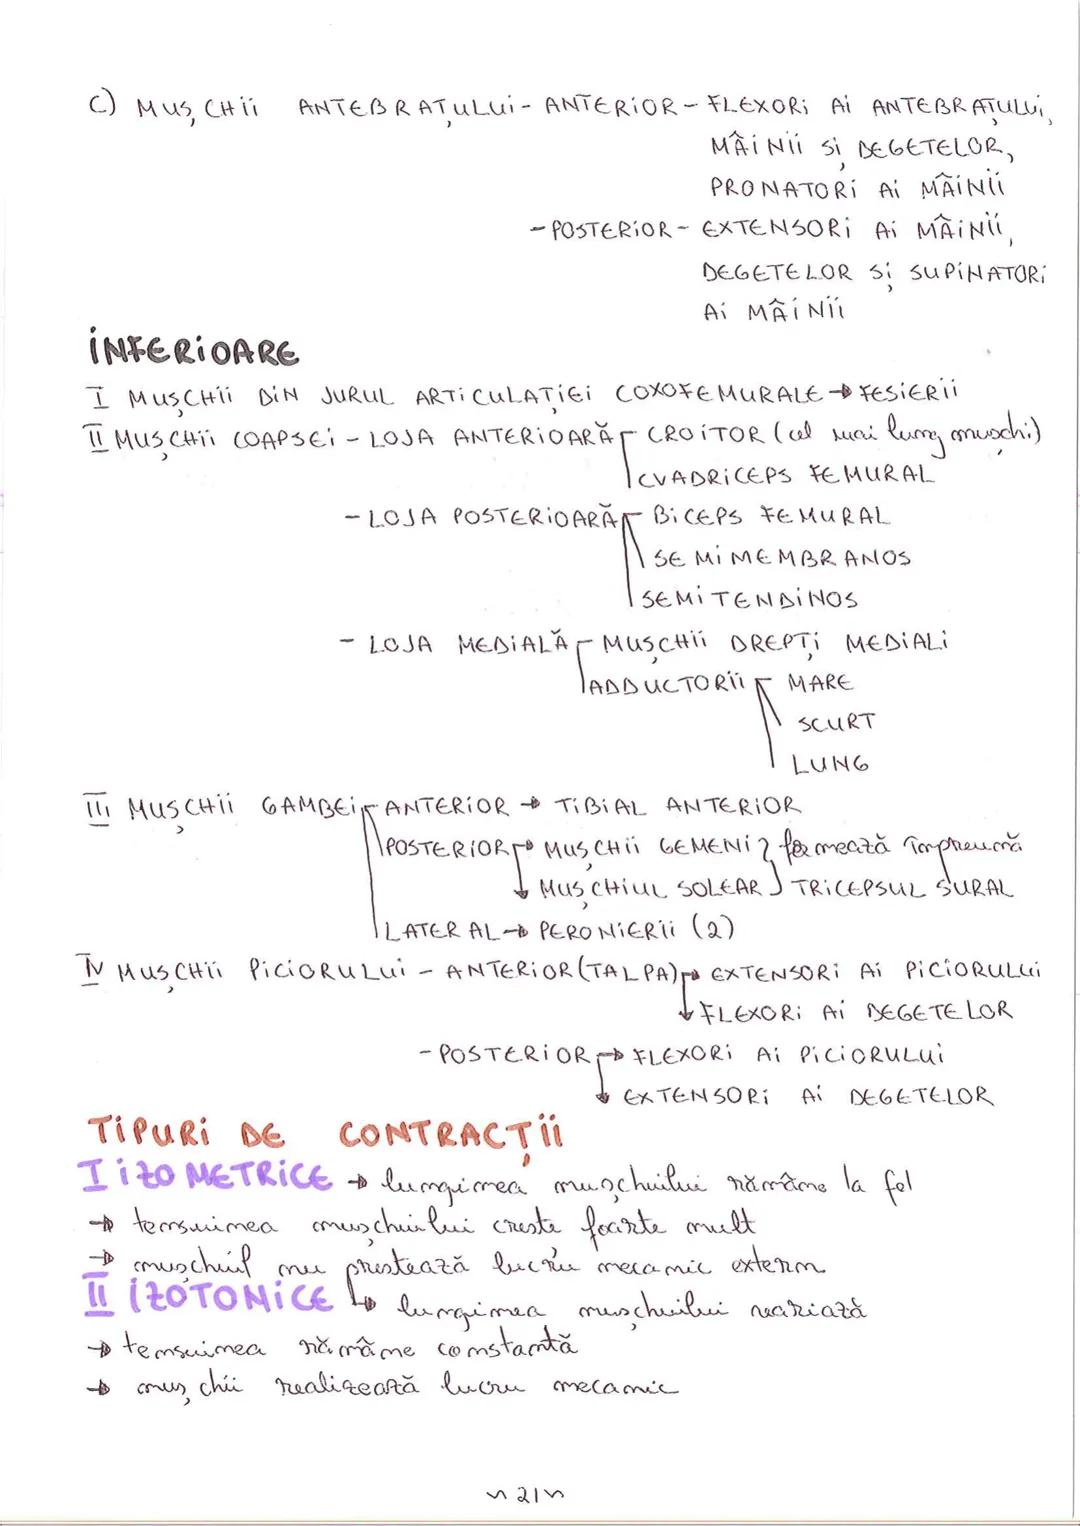 C) MUȘCHII ANTEBRAȚULUI - ANTERIOR - FLEXORI AI ANTEBRAȚULUI,
MÂINII ȘI DEGETELOR,
PRONATORI AI MÂINII
- POSTERIOR - EXTENSORI AI MÂINII,
DEGETELOR ȘI SUPINATORI
AI MÂINII
INFERIOARE
I MUȘCHII DIN JURUL ARTICULAȚIEI COXOFEMURALE → FESIERII
II MUȘCHII COAPSEI - LOJA ANTERIOARĂ CROITOR (cel mai lung mușchi)
CVADRICEPS FEMURAL
- LOJA POSTERIOARĂ BICEPS FEMURAL
SEMIMEMBRANOS
SEMITENDINOS
- LOJA MEDIALĂ MUȘCHII DREPȚI MEDIALI
ADDUCTORII MARE
SCURT
LUNG
III MUȘCHII GAMBEI ANTERIOR → TIBIAL ANTERIOR
POSTERIOR → MUȘCHII GEMENI } formează împreună
↓ MUȘCHIUL SOLEAR } TRICEPSUL SURAL
LATERAL → PERONIERII (2)
IV MUȘCHII PICIORULUI - ANTERIOR (TALPA) → EXTENSORI AI PICIORULUI
↓ FLEXORI AI DEGETELOR
- POSTERIOR → FLEXORI AI PICIORULUI
↓ EXTENSORI AI DEGETELOR
TIPURI DE CONTRACȚII
I IZOMETRICE → lungimea mușchiului rămâne la fel
→ tensiunea mușchiului crește foarte mult
→ mușchiul nu prestează lucru mecanic extern
II IZOTONICE ↳ lungimea mușchiului variază
→ tensiunea rămâne constantă
→ mușchii realizează lucru mecanic
~ 21 ~